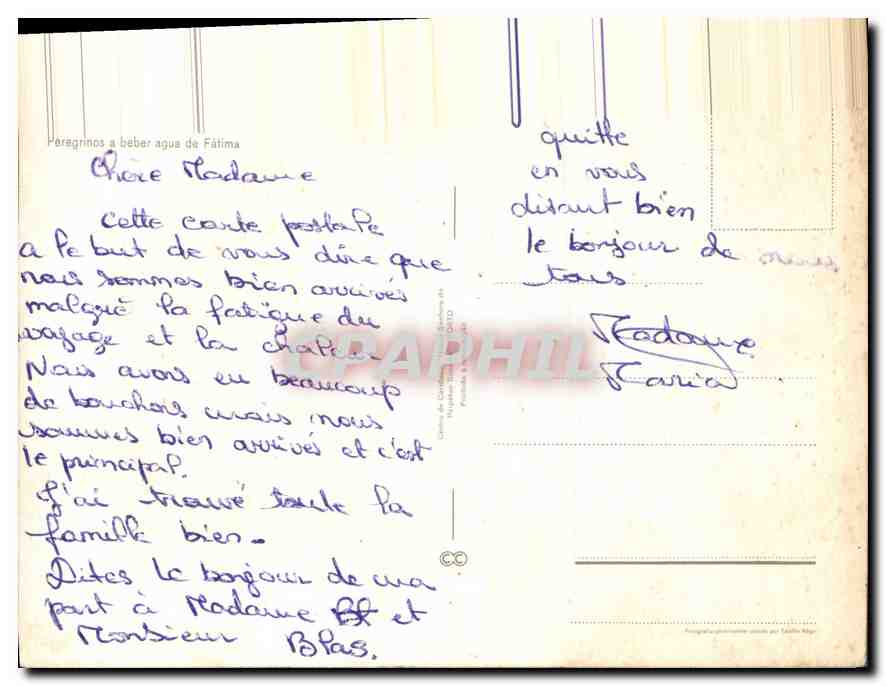 Peregrinos a beber agua de Fátima
Chère Madame
Cette carte postale
a le but de vous dire que
nous sommes bien arrivés
malgré la fatigue du
voyage et la chaleur
Nous avons eu beaucoup
de bouchons mais nous
sommes bien arrivés et c'est
le principal.
J'ai trouvé toute la
famille bien.
Dites le bonjour de ma
part à Madame et
Monsieur Blas.
quitte
en vous
disant bien
le bonjour de
tous
Madame
Maria
CPAPHIL
CC